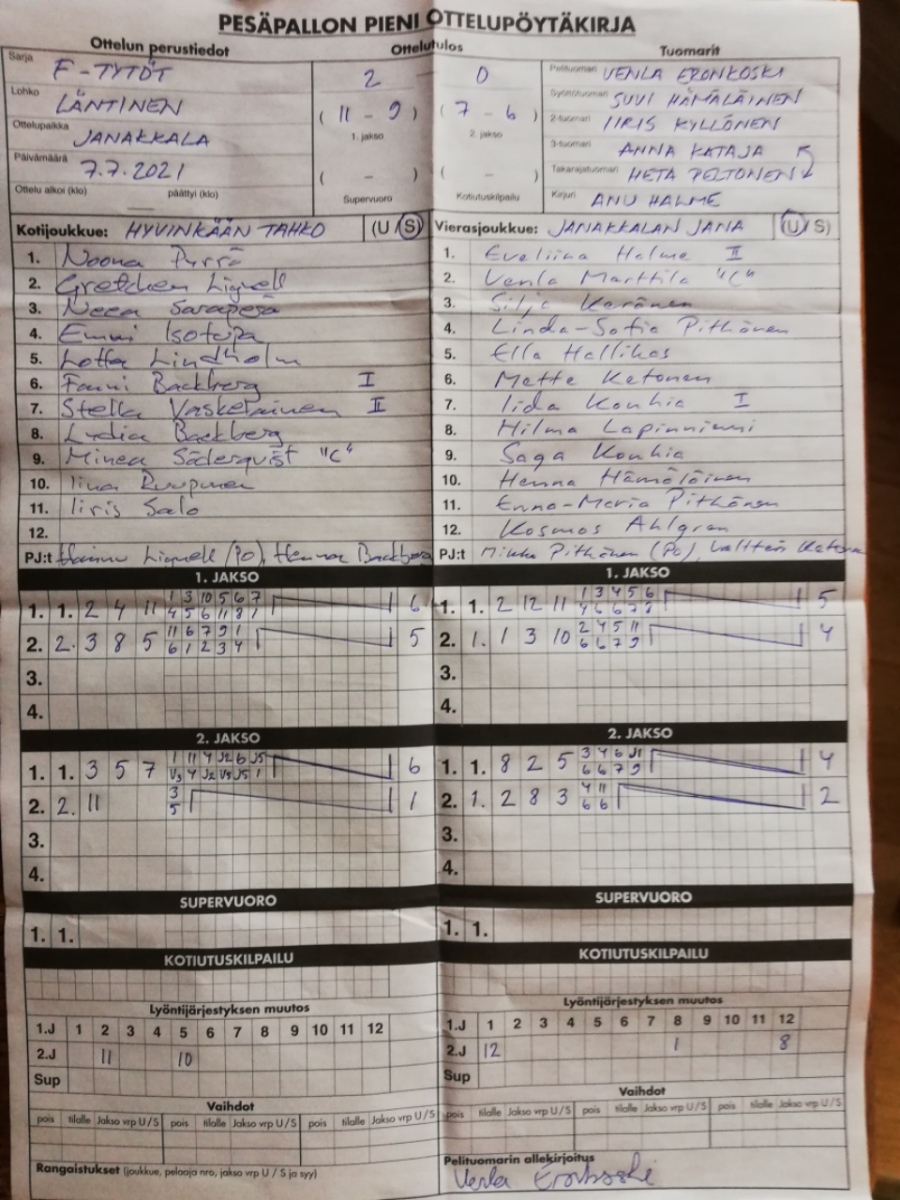 PESÄPALLON PIENI OTTELUPÖYTÄKIRJA
Ottelun perustiedot Ottelutulos Tuomarit
Sarja F-TYTÖT 2 - 0 Pelituomari VENLA ERONKOSKI
Lohko LÄNTINEN ( 11 - 9 ) ( 7 - 6 ) Syöttötuomari SUVI HÄMÄLÄINEN
1. jakso 2. jakso 2-tuomari IIRIS KYLLÖNEN
Ottelupaikka JANAKKALA 3-tuomari ANNA KATAJA
Päivämäärä 7.7.2021 ( - ) ( - ) Takarajatuomari HETA PELTONEN
Ottelu alkoi (klo) päättyi (klo) Supervuoro Kotiutuskilpailu Kirjuri ANU HALME
Kotijoukkue: HYVINKÄÄN TAHKO (U / S) Vierasjoukkue: JANAKKALAN JANA (U / S)
1. Noona Pyrrö 1. Eveliina Halme II
2. Gretchen Lignell 2. Venla Marttila "C"
3. Neea 3. Silja Keränen
4. Emmi Isotoja 4. Linda-Sofia Pitkänen
5. Lotta Lindholm 5. Ella Hallikas
6. Fanni Backberg I 6. Mette Ketonen
7. Stella Vaskelainen II 7. Iida Kouhia I
8. Lydia Backberg 8. Hilma Lapinniemi
9. Minea Söderqvist "C" 9. Saga Kouhia
10. Iina Ruuponen 10. Henna Hämäläinen
11. Iiris Salo 11. Enna-Maria Pitkänen
12. 12. Kosmos Ahlgren
PJ:t Hannu Lignell (PO), Henna Backberg PJ:t Mikko Pitkänen (PO), Valtteri Ketonen
1. JAKSO 1. JAKSO
1 3 10 5 6 7 1 3 4 5 6
1. 1. 2 4 11 4 5 6 11 8 1 6 1. 1. 2 12 11 4 6 6 7 8 5
11 6 7 9 1 2 4 5 11
2. 2. 3 8 5 6 1 2 3 4 5 2. 1. 1 3 10 6 6 7 9 4
3. 3.
4. 4.
2. JAKSO 2. JAKSO
1 11 4 J2 6 J5 3 4 6 J1
1. 1. 3 5 7 V3 4 J2 V5 J5 1 6 1. 1. 8 2 5 6 6 7 9 4
3 4 11
2. 2. 11 5 1 2. 1. 2 8 3 6 6 2
3. 3.
4. 4.
SUPERVUORO SUPERVUORO
1. 1. 1. 1.
KOTIUTUSKILPAILU KOTIUTUSKILPAILU
Lyöntijärjestyksen muutos Lyöntijärjestyksen muutos
1.J 1 2 3 4 5 6 7 8 9 10 11 12 1.J 1 2 3 4 5 6 7 8 9 10 11 12
2.J 11 10 2.J 12 1 8
Sup Sup
Vaihdot Vaihdot
pois tilalle Jakso vrp U / S pois tilalle Jakso vrp U / S pois tilalle Jakso vrp U / S pois tilalle Jakso vrp U / S pois tilalle Jakso vrp U / S pois tilalle Jakso vrp U / S
Rangaistukset (joukkue, pelaaja nro, jakso vrp U / S ja syy) Pelituomarin allekirjoitus
Venla Eronkoski